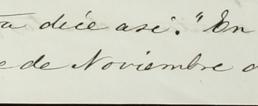 dice asi: "En
de Noviembre